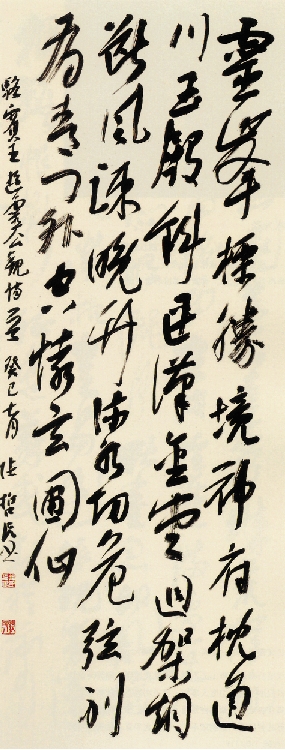 靈峯標勝境神府枕通
川玉殿斜連漢金堂迥架烟
斷風疎晚竹流水切危弦別
有青門外空懷玄圃仙
駱賓王遊靈公觀詩 癸巳